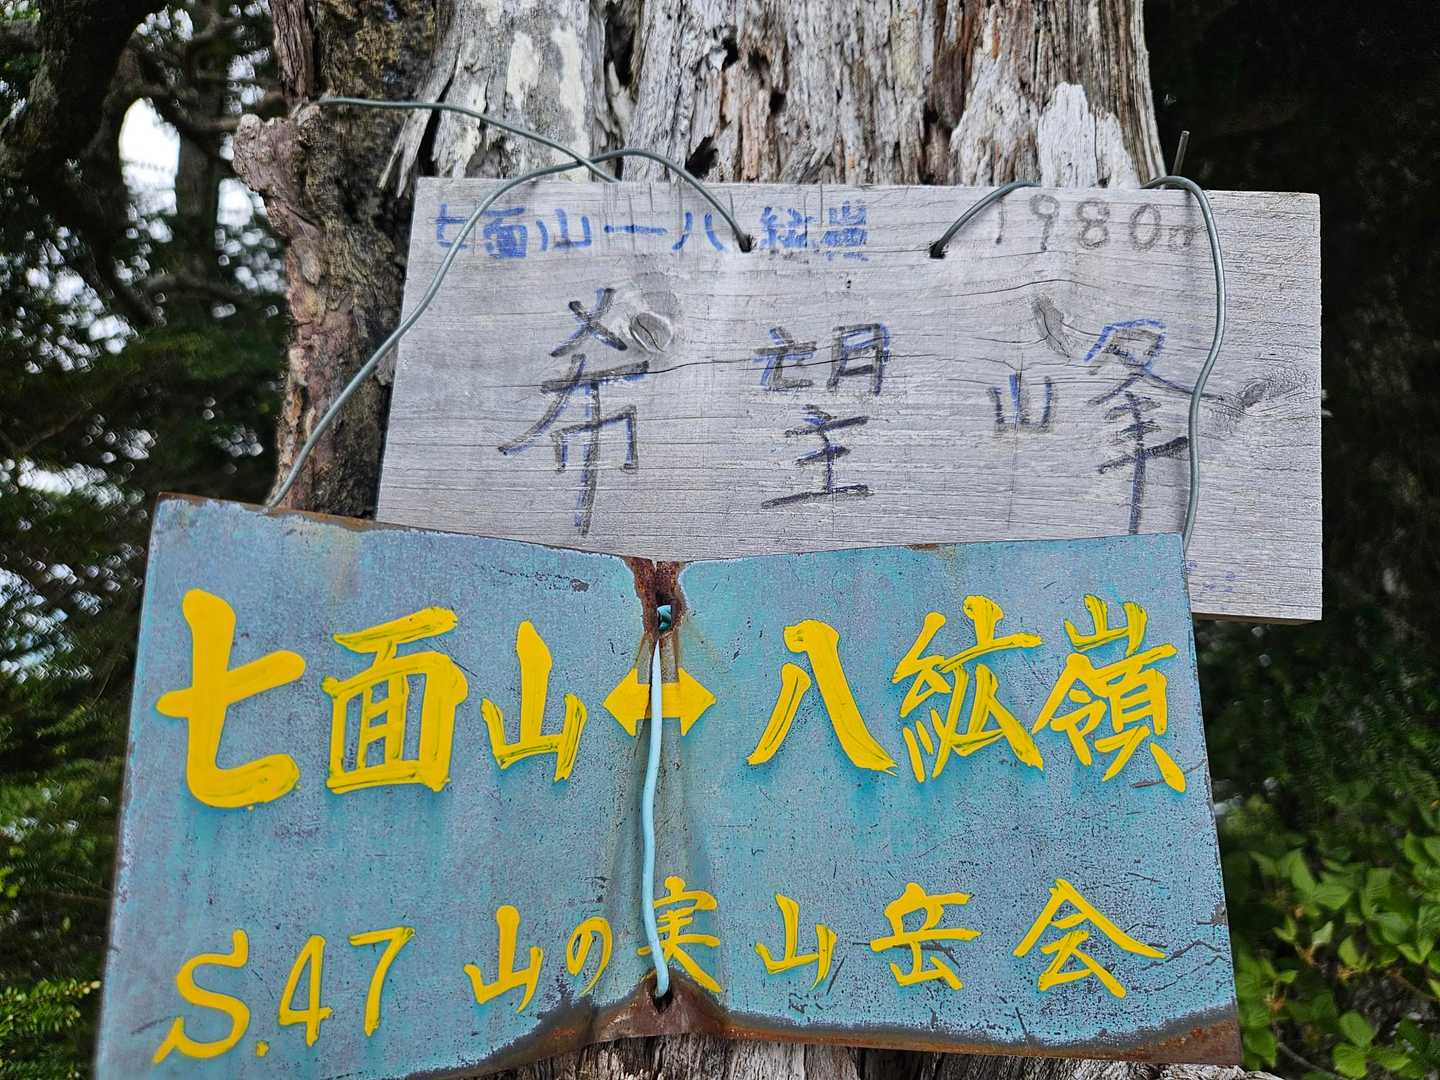 七面山一八紘嶺 1980m
希望峰
七面山↔八紘嶺
S.47 山の実山岳会